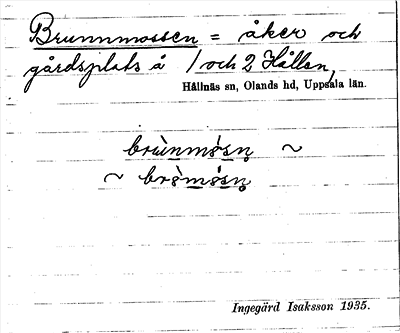 Brunnmossen = åker och
gårdsplats å 1 och 2 Hållen,
Hållnäs sn, Olands hd, Uppsala län.
brùnmósn̥ ~
~ bròmósn̥
Ingegärd Isaksson 1935.